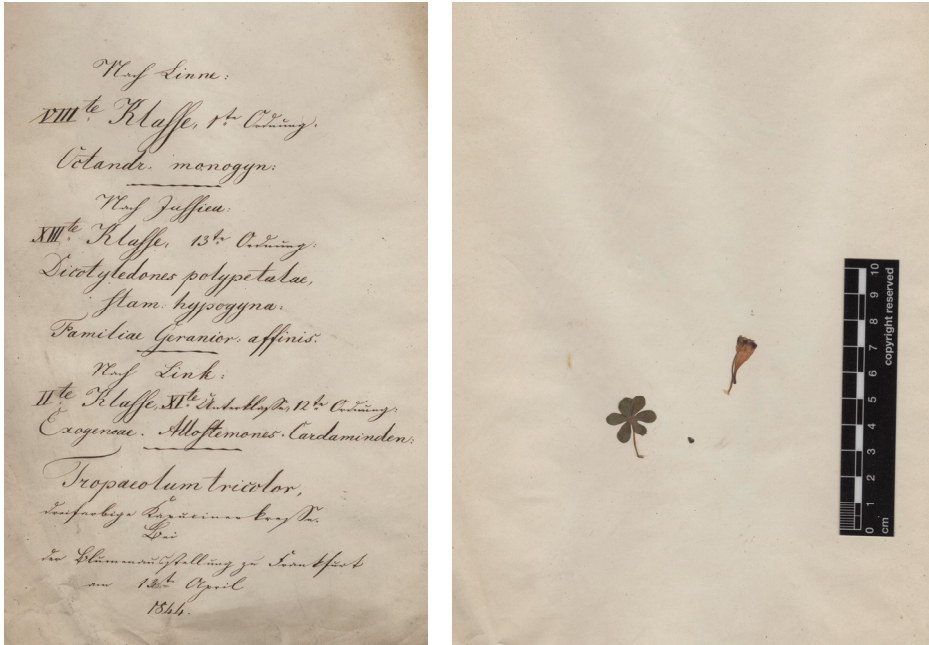 Nach Linne:
VIII te. Klasse, 1te Ordnung.
Octandr. monogyn:
Nach Jussieu:
XIII te. Klasse, 13te Ordnung:
Dicotyledones polypetalae,
stam: hypogyna:
Familiae Geranior. affinis.
Nach Link:
II te Klasse, XI te Unterklasse, 12te Ordnung:
Exogeneae. Allostemones. Cardaminden:
Tropaeolum tricolor,
dreifarbige Kapucinerkresse.
Bei
der Blumenausstellung zu Frankfurt
am April
1844.
0 1 2 3 4 5 6 7 8 9 10
cm
copyright reserved